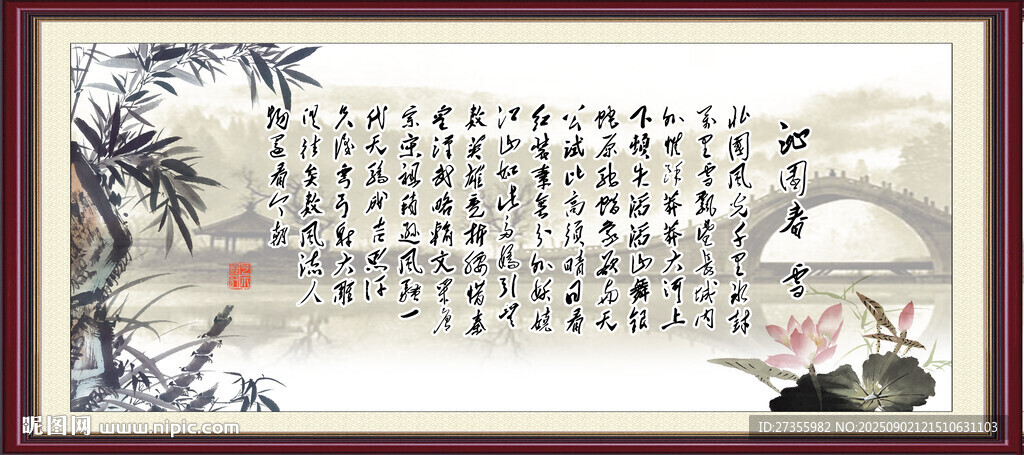 沁园春 雪
北国风光千里冰封
万里雪飘望长城内
外惟馀莽莽大河上
下顿失滔滔山舞银
蛇原驰蜡象欲与天
公试比高须晴日看
红装素裹分外妖娆
江山如此多娇引无
数英雄竞折腰惜秦
皇汉武略输文采唐
宗宋祖稍逊风骚一
代天骄成吉思汗
只识弯弓射大雕
俱往矣数风流人
物还看今朝
昵图网 www.nipic.com
ID:27355982 NO:20250902121510631103